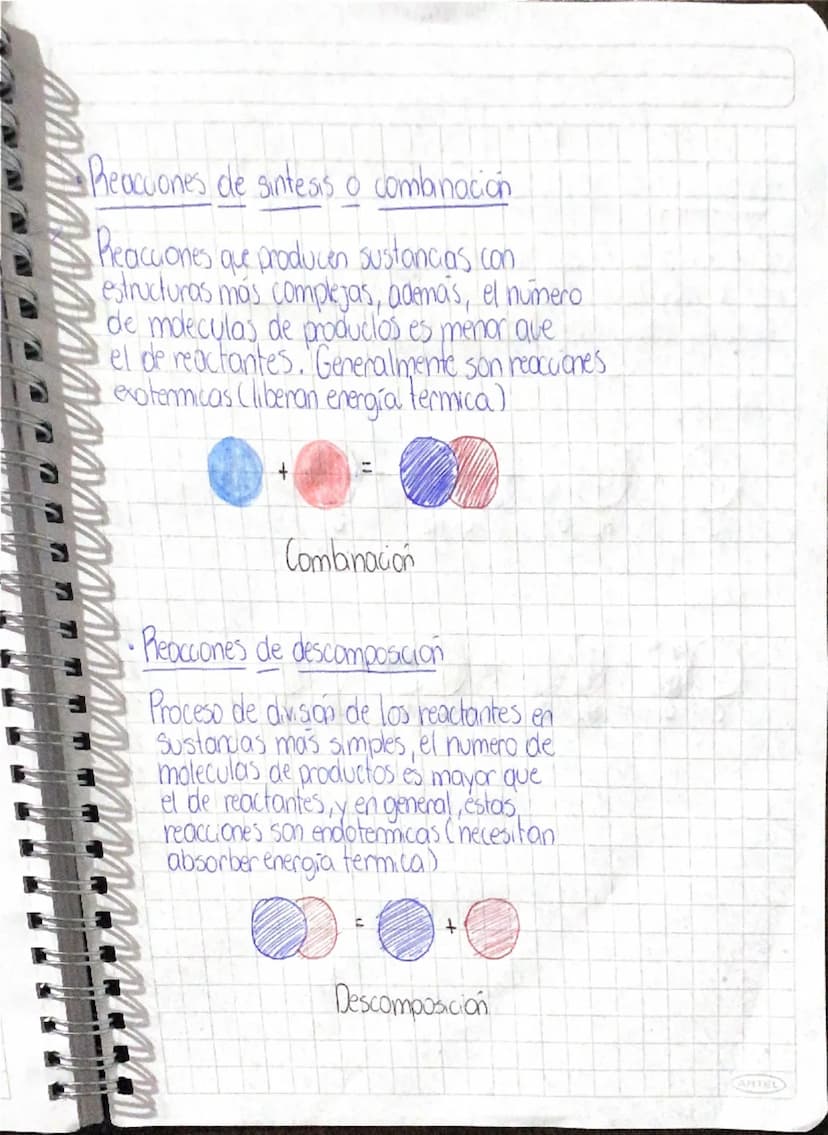 · Reacciones de síntesis o combinación
Reacciones que producen sustancias con
estructuras más complejas, además, el número
de moleculas de productos es menor que
el de reactantes. Generalmente son reacciones
exotermicas (liberan energía termica)
+ =
Combinación
· Reacciones de descomposición
Proceso de división de los reactantes en
sustancias más simples, el numero de
moleculas de productos es mayor que
el de reactantes, y en general, estas
reacciones son endotermicas (necesitan
absorber energía termica)
= +
Descomposición
AMTEL